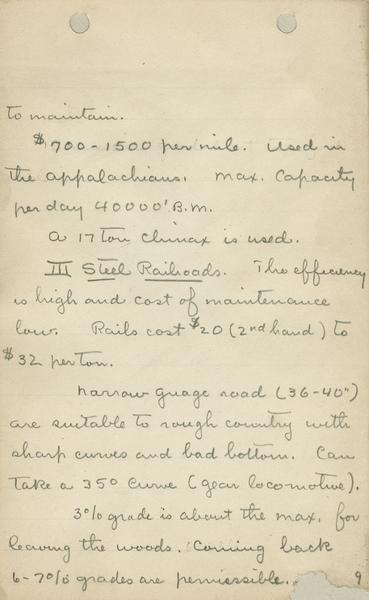 to maintain.
$700-1500 per mile. Used in
the appalachians. max. Capacity
per day 40000' B.M.
A 17 ton Climax is used.
III Steel Railroads. The efficiency
is high and cost of maintenance
low. Rails cost $20 (2nd hand) to
$32 per ton.
narrow guage road (36-40")
are suitable to rough country with
sharp curves and bad bottom. Can
take a 35° curve (gear locomotive).
3% grade is about the max. for
leaving the woods. Coming back
6-7% grades are permissible.
9